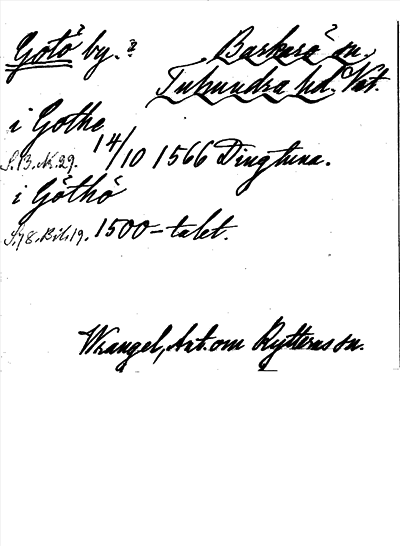 Götö by. Barkarö sn.
Tuhundra hd. Vät.
i Gothe
S. 13. Nr. 29. 14/10 1566 Dingtuna.
i Göthö
S. 78. Bil. 19. 1500-talet.
Wrangel, Ant. om Rytterns sn.